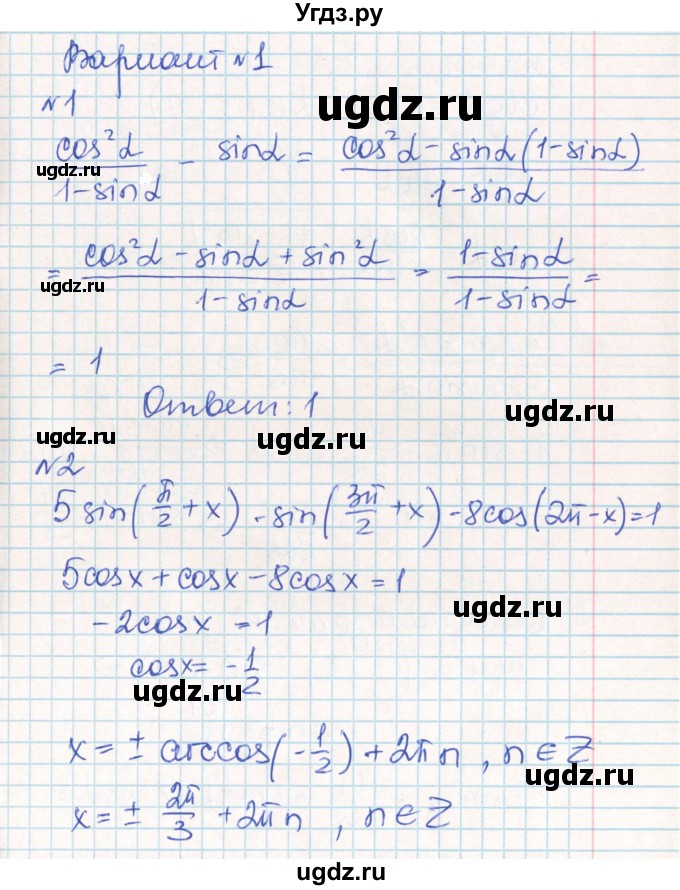 Угдз.ру
Вариант №1
ugdz.ru
№1
cos²α/(1-sinα) - sinα = (cos²α - sinα(1-sinα))/(1-sinα)
ugdz.ru
ugdz.ru
= (cos²α - sinα + sin²α)/(1-sinα) = (1-sinα)/(1-sinα) =
ugdz.ru
ugdz.ru
= 1
Ответ: 1
ugdz.ru
ugdz.ru
№2
5 sin(π/2 + x) - sin(3π/2 + x) - 8cos(2π - x) = 1
5cosx + cosx - 8cosx = 1
ugdz.ru
-2cosx = 1
cosx = -1/2
ugdz.ru
x = ± arccos(-1/2) + 2πn , n∈Z
ugdz.ru
x = ± 2π/3 + 2πn , n∈Z
ugdz.ru
ugdz.ru